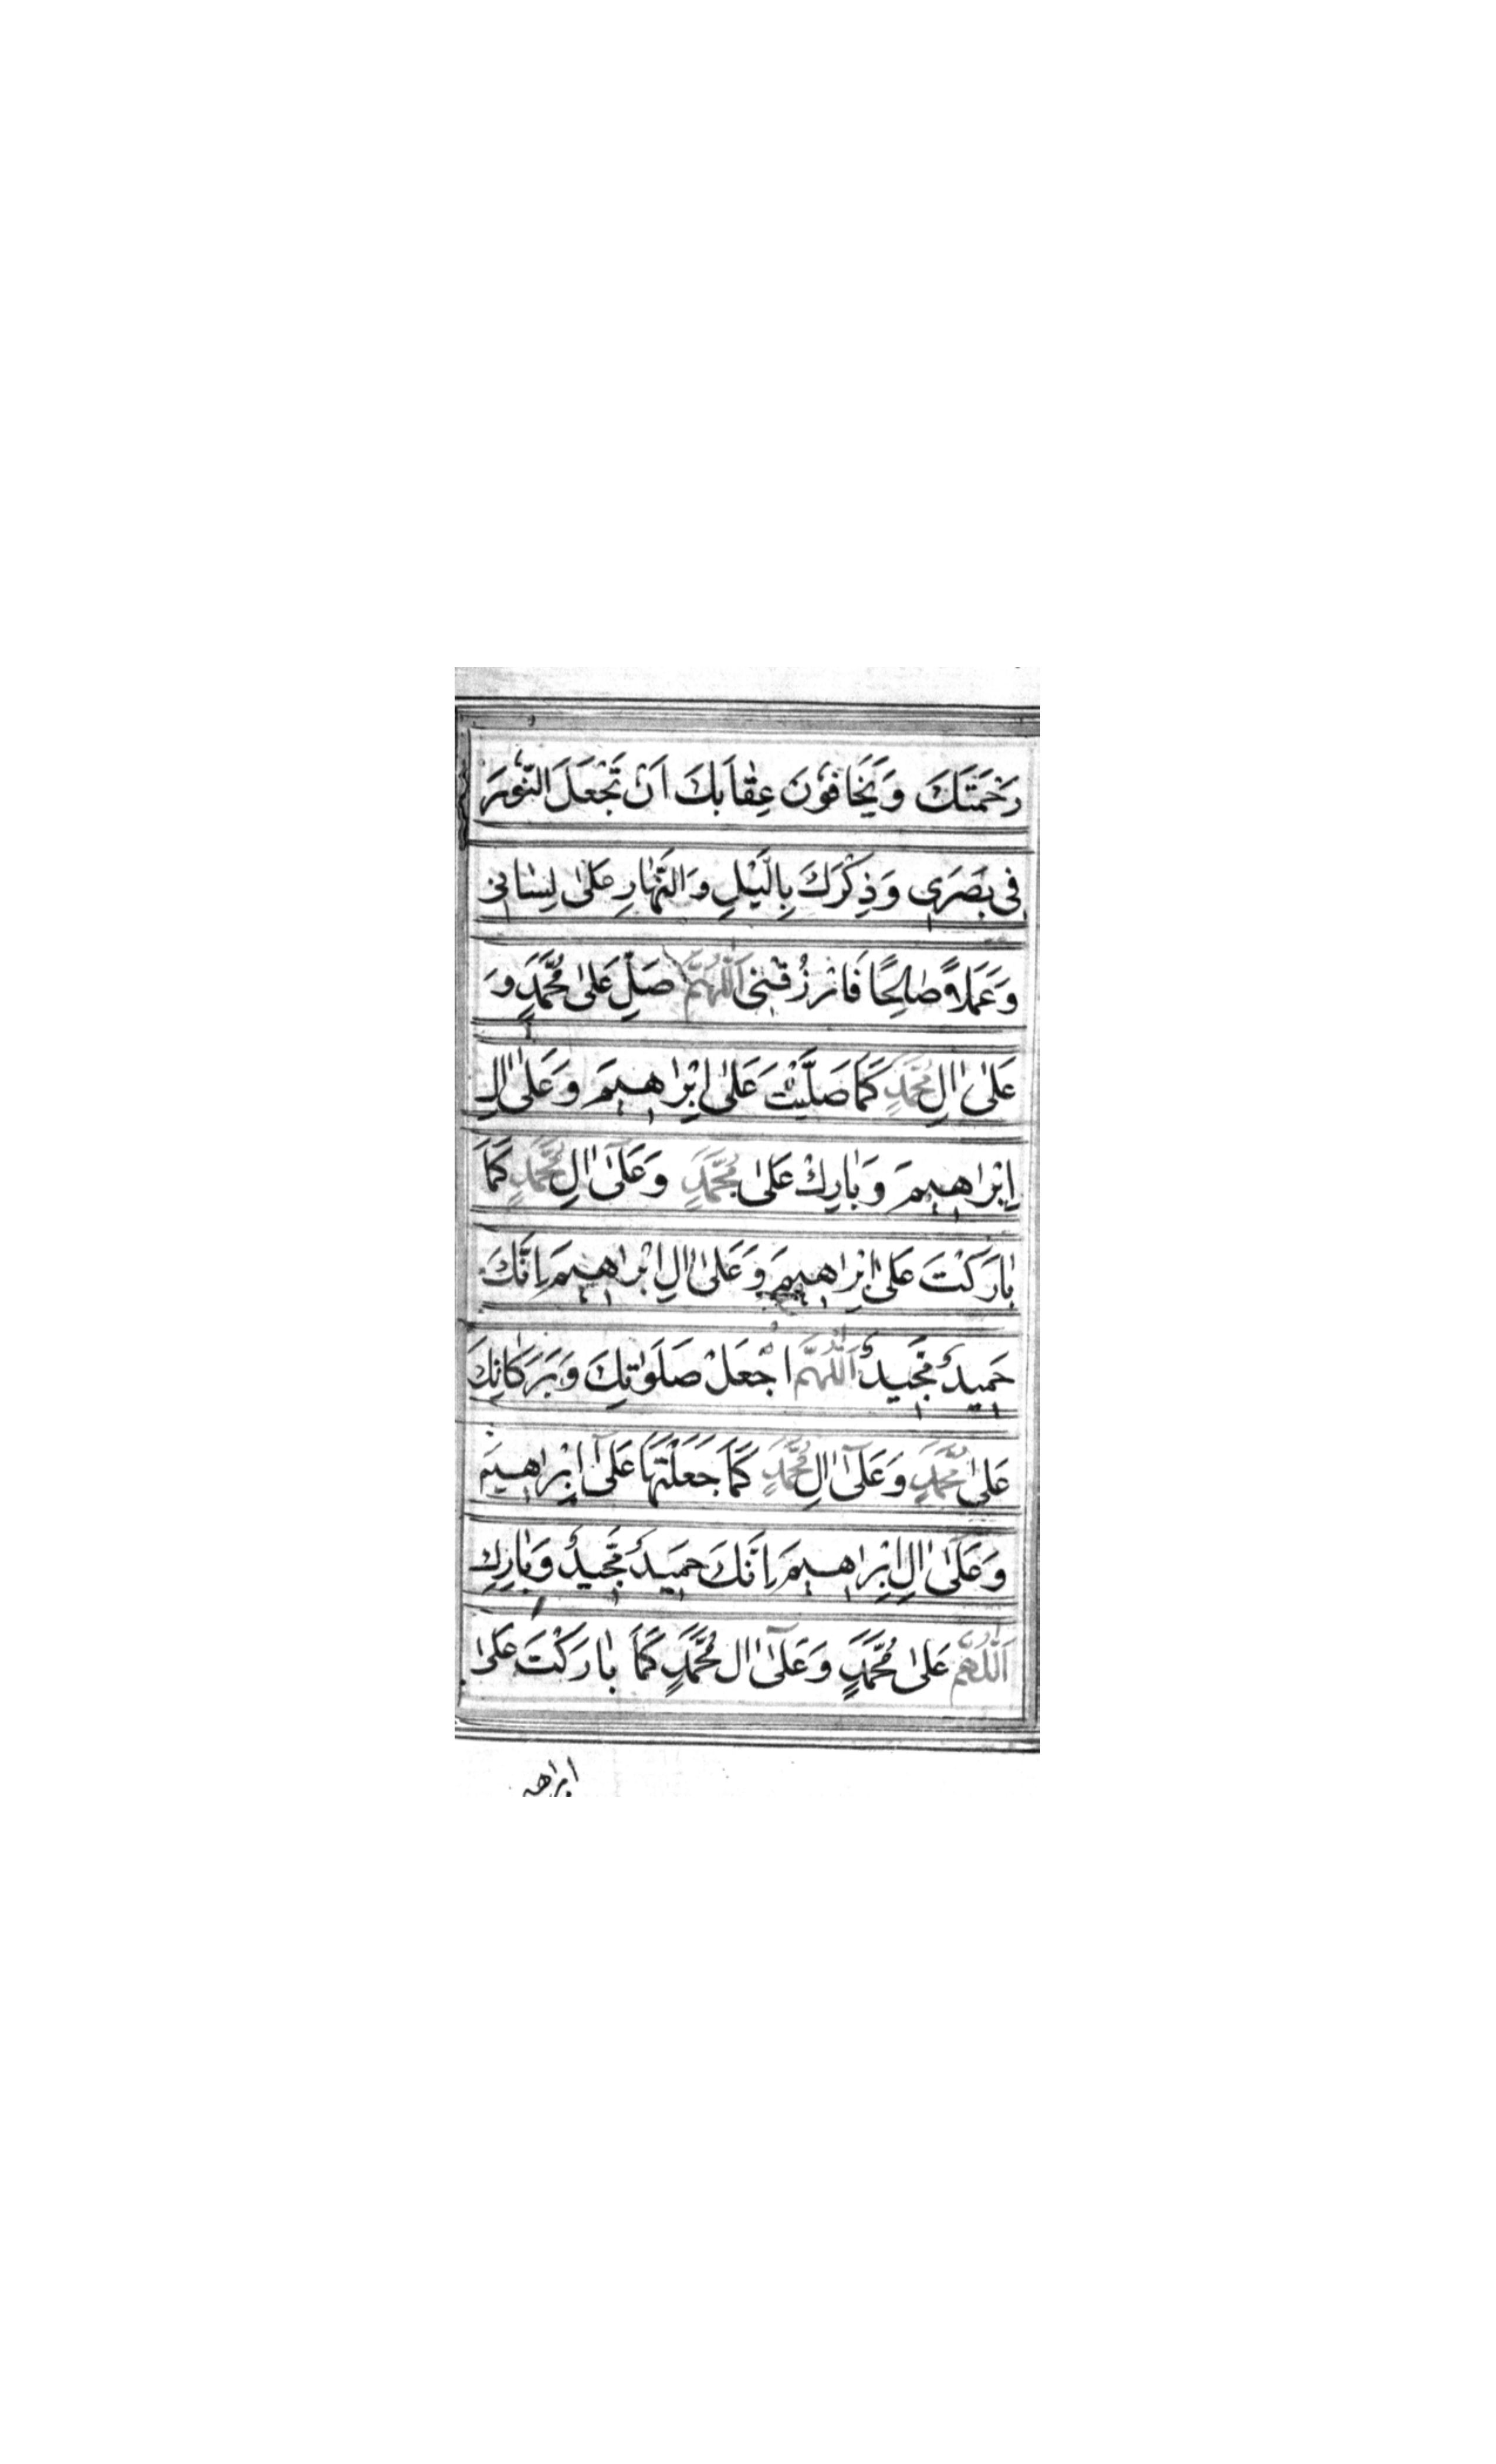 رَحْمَتَكَ وَيَخَافُونَ عِقَابَكَ اَنْ تَجْعَلَ النُّورَ
فِي بَصَرِي وَذِكْرَكَ بِالَّيْلِ وَالنَّهَارِ عَلٰى لِسَانِي
وَعَمَلًا صَالِحًا فَارْزُقْنِي اَللّٰهُمَّ صَلِّ عَلٰى مُحَمَّدٍ وَ
عَلٰى اٰلِ مُحَمَّدٍ كَمَا صَلَّيْتَ عَلٰى اِبْرَاهِيمَ وَعَلٰى اٰلِ
اِبْرَاهِيمَ وَبَارِكْ عَلٰى مُحَمَّدٍ وَعَلٰى اٰلِ مُحَمَّدٍ كَمَا
بَارَكْتَ عَلٰى اِبْرَاهِيمَ وَعَلٰى اٰلِ اِبْرَاهِيمَ اِنَّكَ
حَمِيدٌ مَّجِيدٌ اَللّٰهُمَّ اجْعَلْ صَلَوَاتِكَ وَبَرَكَاتِكَ
عَلٰى مُحَمَّدٍ وَعَلٰٓى اٰلِ مُحَمَّدٍ كَمَا جَعَلْتَهَا عَلٰٓى اِبْرَاهِيمَ
وَعَلٰٓى اٰلِ اِبْرَاهِيمَ اِنَّكَ حَمِيدٌ مَّجِيدٌ وَبَارِكِ
اَللّٰهُمَّ عَلٰى مُحَمَّدٍ وَعَلٰٓى اٰل مُحَمَّدٍ كَمَا بَارَكْتَ عَلٰى
ابراهيم